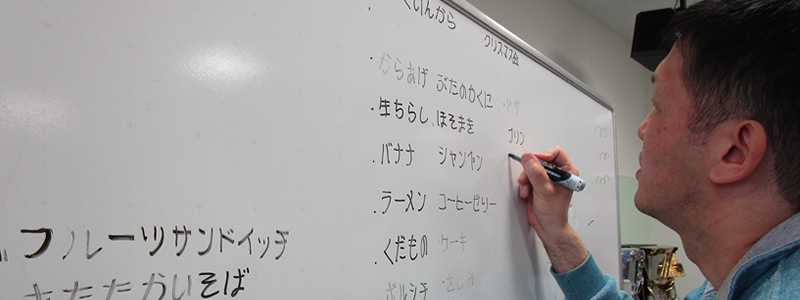 フルーツサンドイッチ
あたたかいそば
クリスマス会
・からあげ ぶたのかくに
・生ちらし ほそまき
・バナナ シャンペン
・ラーメン コーヒーゼリー
・くだもの ケーキ
ボルシチ ・さしみ